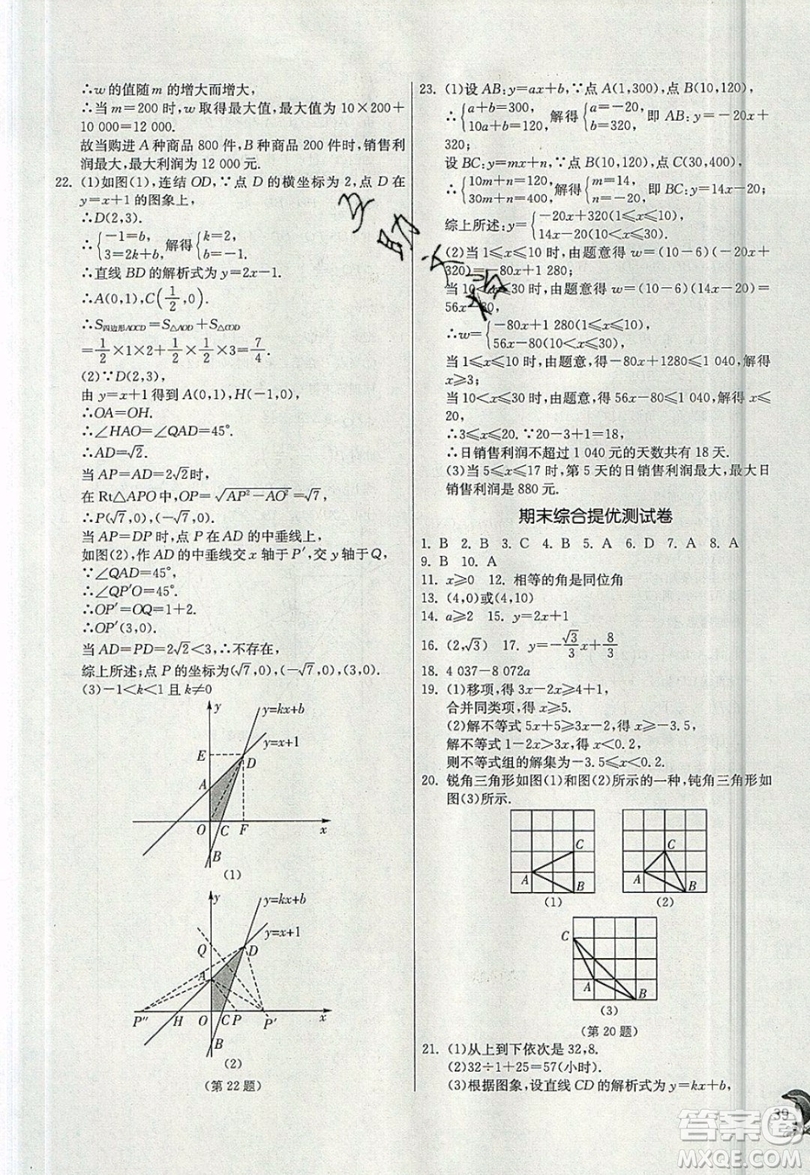 ∴w的值随m的增大而增大,
∴当m=200时,w取得最大值,最大值为10×200+
10 000=12 000.
故当购进A种商品800件,B种商品200件时,销售利
润最大,最大利润为12 000元.
22. (1)如图(1),连结OD,∵点D的横坐标为2,点D在
y=x+1的图象上,
∴D(2,3).
∴{-1=b, 3=2k+b, 解得{k=2, b=-1.
∴直线BD的解析式为y=2x-1.
∴A(0,1),C(1/2,0).
∴S四边形AOCD=S△AOD+S△COD
=1/2×1×2+1/2×1/2×3=7/4.
(2)∵D(2,3),
由y=x+1得到A(0,1),H(-1,0),
∴OA=OH.
∴∠HAO=∠QAD=45°.
∴AD=2√2.
当AP=AD=2√2时,
在Rt△APO中,OP=√(AP²-AO²)=√7,
∴P(√7,0)或(-√7,0).
当AP=DP时,点P在AD的中垂线上,
如图(2),作AD的中垂线交x轴于P′,交y轴于Q,
∵∠QAD=45°,
∴∠QP′O=45°.
∴OP′=OQ=1+2.
∴OP′(3,0).
当AD=PD=2√2<3,∴不存在,
综上所述;点P的坐标为(√7,0),(-√7,0),(3,0).
(3)-1<k<1且k≠0
y
y=kx+b
y=x+1
E
D
A
O
C
F
x
B
(1)
y
y=kx+b
y=x+1
Q
D
A
P″
H
O
C
P
P′
x
B
(2)
(第22题)
23. (1)设AB:y=ax+b,∵点A(1,300),点B(10,120),
∴{a+b=300, 10a+b=120, 解得{a=-20, b=320, 即AB:y=-20x+
320;
设BC:y=mx+n,∵点B(10,120),点C(30,400),
∴{10m+n=120, 30m+n=400, 解得{m=14, n=-20, 即BC:y=14x-20,
综上所述:y={-20x+320(1≤x≤10), 14x-20(10<x≤30).
(2)当1≤x≤10时,由题意得w=(10-6)(-20x+
320)=-80x+1 280;
当10<x≤30时,由题意得w=(10-6)(14x-20)=
56x-80,
∴w={-80x+1 280(1≤x≤10), 56x-80(10<x≤30).
当1≤x≤10时,由题意得-80x+1280≤1 040,解得
x≥3;
当10<x≤30时,由题意得56x-80≤1 040,解得x≤
20,
∴3≤x≤20,
∴日销售利润不超过1 040元的天数共有18天.
(3)当5≤x≤17时,第5天的日销售利润最大,最大日
销售利润是880元.
期末综合提优测试卷
1. B 2. B 3. C 4. A 5. C 6. D 7. A 8. A
9. B 10. A
11. x≥0 12. 相等的角是同位角
13. (4,0)或(4,10)
14. a≥2 15. y=2x+1
16. (2,√3) 17. y=-√3/3x+8/3
18. 4 037-8 072a
19. (1)移项,得3x-2x≥4+1,
合并同类项,得x≥5.
(2)解不等式5x+5≥3x-2,得x≥-3.5,
解不等式1-2x>3x,得x<0.2,
则不等式组的解集为-3.5≤x<0.2.
20. 锐角三角形如图(1)和图(2)所示的一种,钝角三角形如
图(3)所示.
C
A
B
(1)
C
A
B
(2)
C
A
B
(3)
(第20题)
21. (1)从上到下依次是32,8.
(2)32÷1+25=57(小时).
(3)根据图象,设直线CD的解析式为y=kx+b,
39
答案圈
MXQE.COM